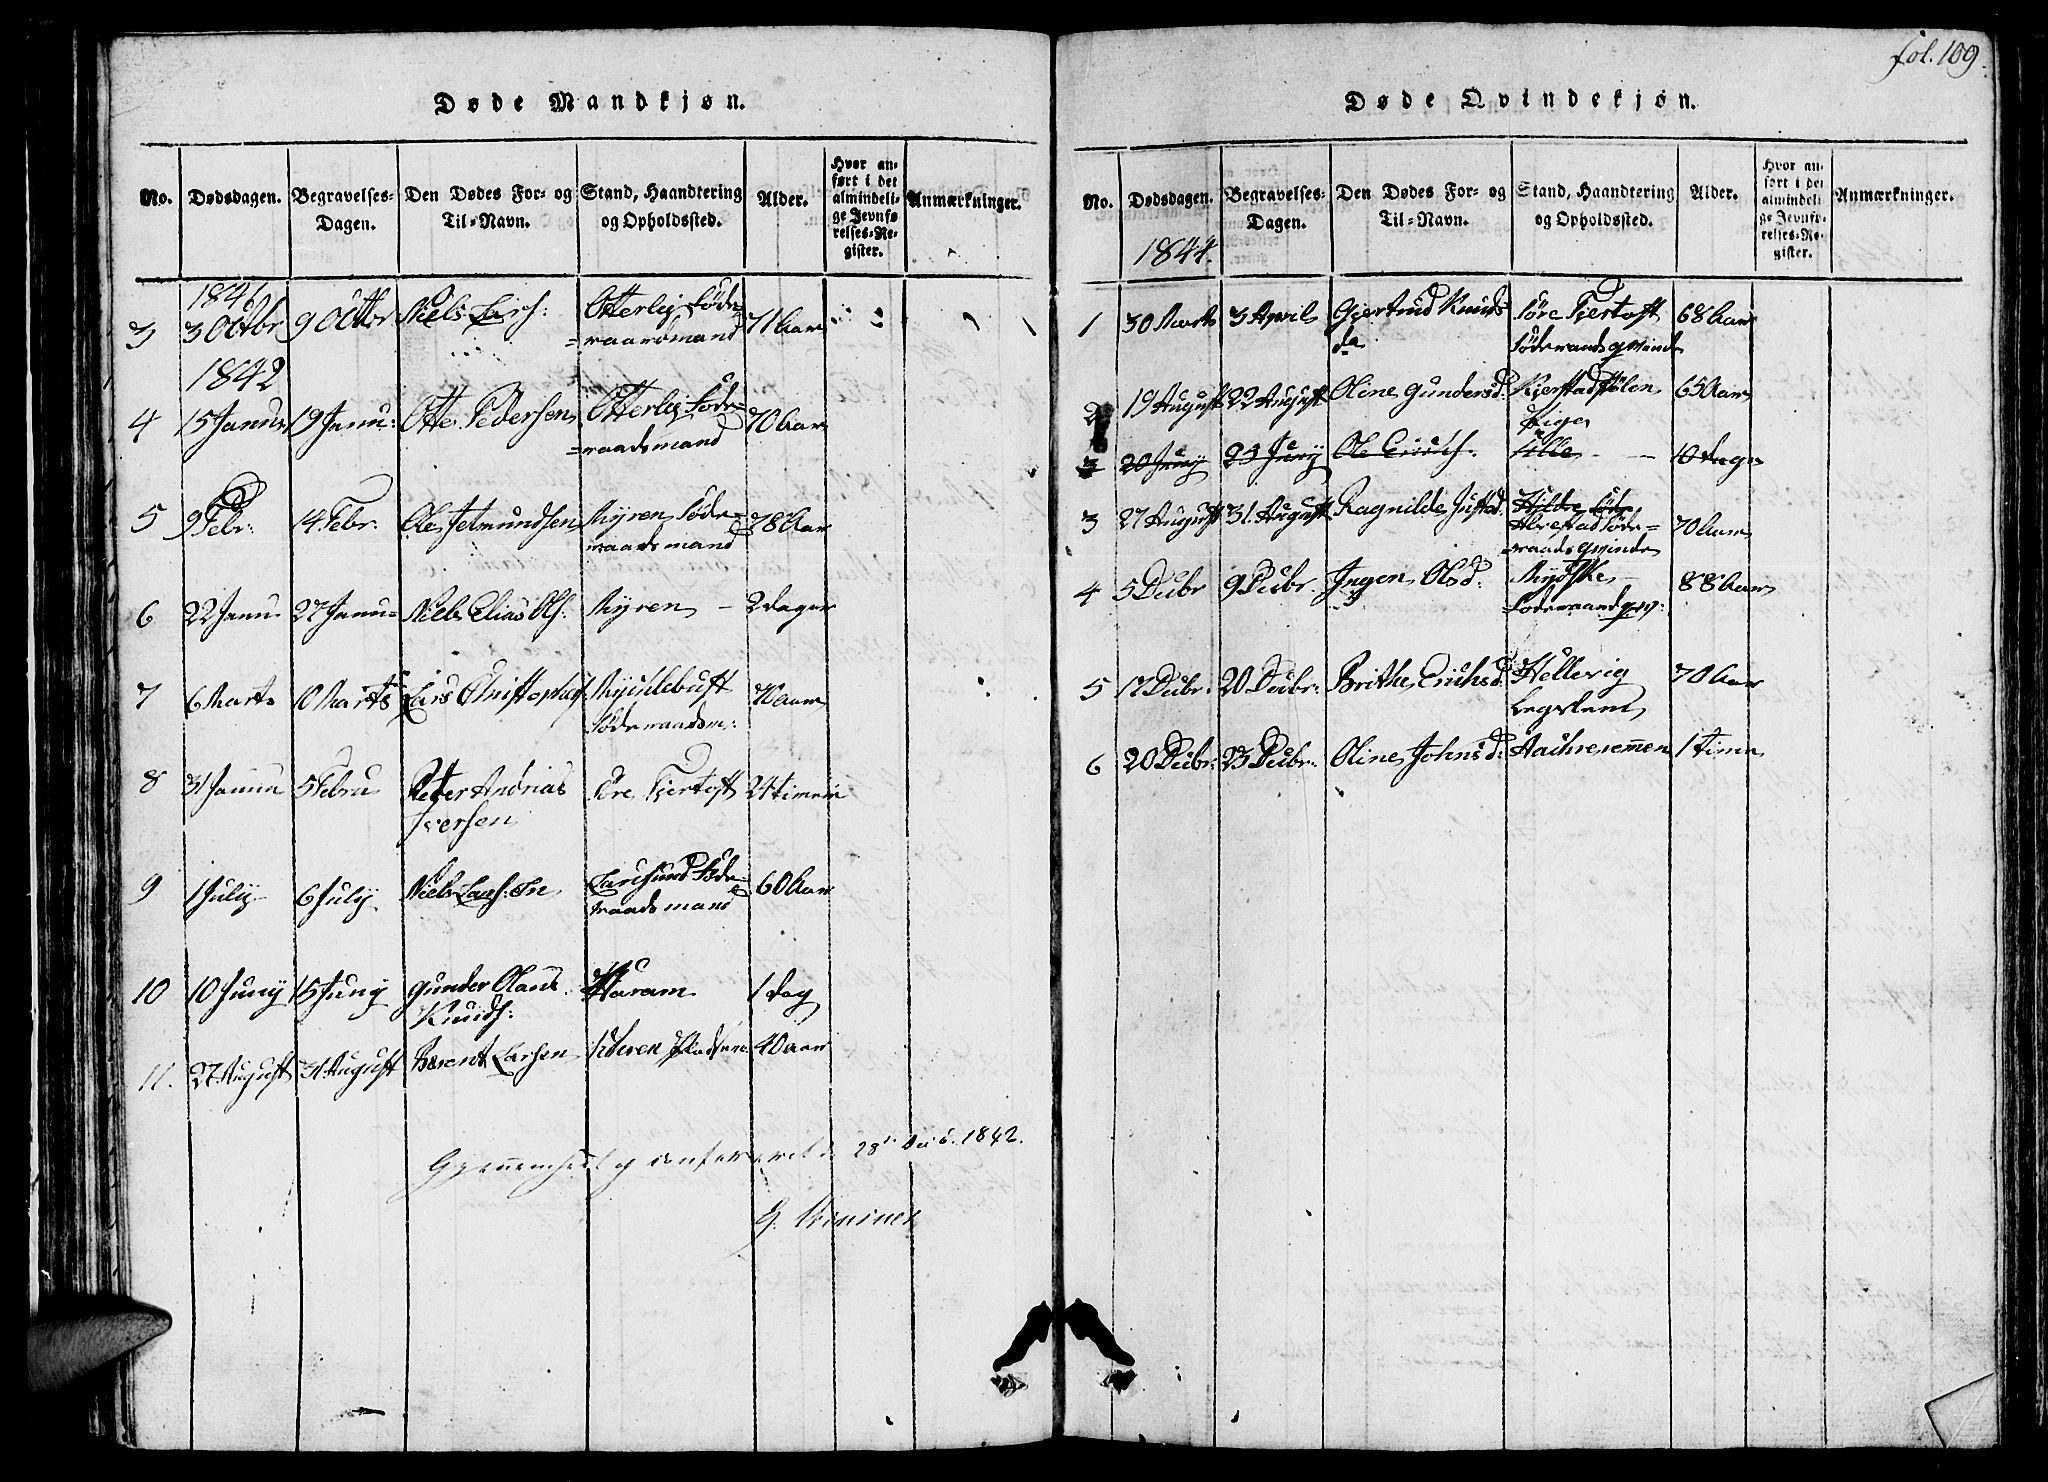 fol. 109.
Døde Mandkjøn.
No. Dødsdagen. Begravelses-Dagen. Den Dødes For- og Til-Navn. Stand, Haandtering og Opholdssted. Alder. Hvor anført i det almindelige Jevnførelses-Register. Anmærkninger.
3 3 Octbr 9 Octbr Niels Lars: Otterlei Føde-
=raadsmand 71 Aar
1842
4 15 Janu: 19 Janu: Otte Pedersen Otterlei Føde-
=raadsmand 70 Aar
5 9 Febr: 14 Febr: Ole Jetmundsen Myren Føde-
raadsmand 78 Aar
6 22 Janu 27 Janu= Niels Elias Ols: Myren – 2 dager
7 6 Marts 10 Marts Lars Christophs Myklebust
Føderaadsm: 70 Aar
8 31 Janu 5 Febru Peter Andrias
Iversen Søre Fjertoft 24 timer
9 1 July 6 July Niels Lars:
Føde-
raadsmand 60 Aar
10 10 Juny 15 Juny Gunder Olaus
Knuds: Haram 1 dag
11. 27 August 31 August Berent Larsen 40 Aar
28 1842.
Døde Qvindekjøn.
No. Dødsdagen. Begravelses-Dagen. Den Dødes For- og Til-Navn. Stand, Haandtering og Opholdssted. Alder. Hvor anført i det almindelige Jevnførelses-Register. Anmærkninger.
1844.
1 30 Marts 3 April Gjertrud Knuds
da Søre Fjertoft
Føderaadsqvinde 68 Aar
2 19 August 22 August Oline Gundersd: Kjerstadstølen
Pige 65 Aar
3 20 Juny 23 Juny Ole 10 dage
3 27 August 31. August Ragnilde Hildre Føde
Alvestad Føde=
=raadsqvinde 70 Aar
4 5 Decbr 9 Decbr. Ingen Olsd:
Føderaadsqv: 88 Aar
5 17 Decbr: 20 Decbr: Brithe Erichsd: Hellevig
Legslem 70 Aar
6 20 Decbr: 23 Decbr: Oline Johnsd: 1 time